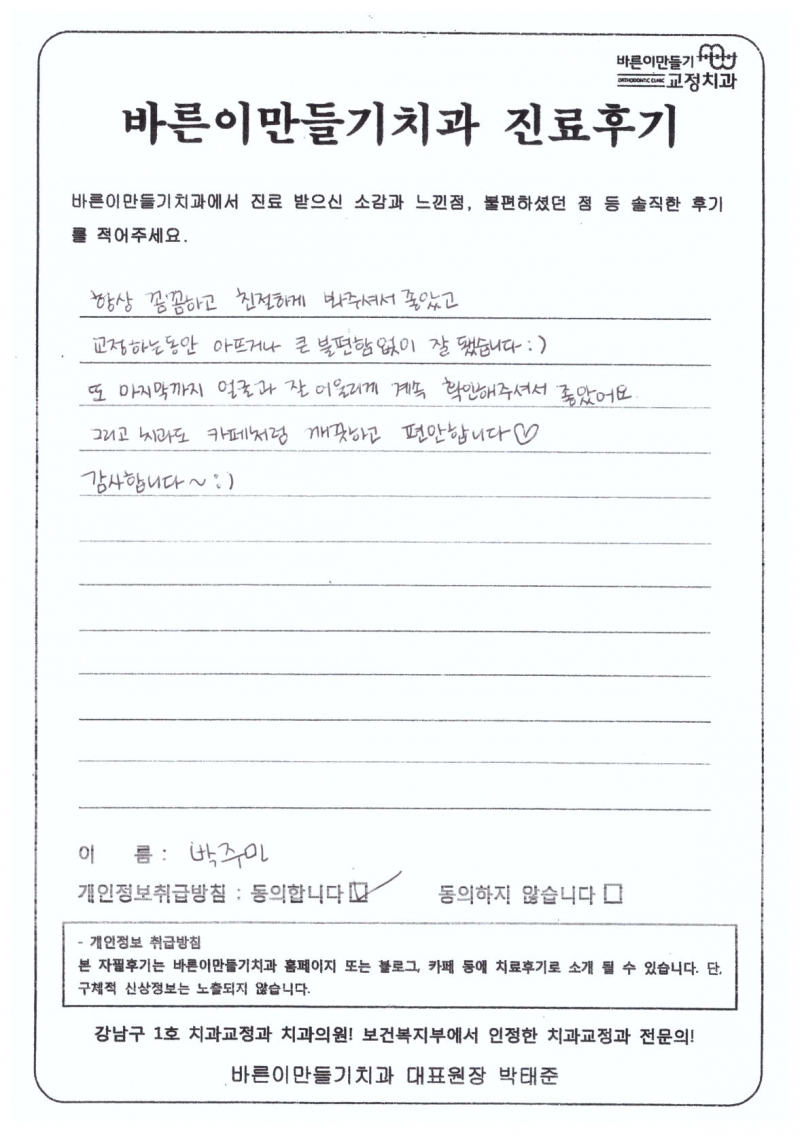 바른이만들기
ORTHODONTIC CLINIC 교정치과
바른이만들기치과 진료후기
바른이만들기치과에서 진료 받으신 소감과 느낀점, 불편하셨던 점 등 솔직한 후기
를 적어주세요.
항상 꼼꼼하고 친절하게 봐주셔서 좋았고
교정하는동안 아프거나 큰 불편함 없이 잘 됐습니다 :)
또 마지막까지 얼굴과 잘 어울리게 계속 확인해주셔서 좋았어요
그리고 치과도 카페처럼 깨끗하고 편안합니다♡
감사합니다~ :)
이 름 : 박주미
개인정보취급방침 : 동의합니다 ☑ 동의하지 않습니다 □
- 개인정보 취급방침
본 자필후기는 바른이만들기치과 홈페이지 또는 블로그, 카페 등에 치료후기로 소개 될 수 있습니다. 단,
구체적 신상정보는 노출되지 않습니다.
강남구 1호 치과교정과 치과의원! 보건복지부에서 인정한 치과교정과 전문의!
바른이만들기치과 대표원장 박태준